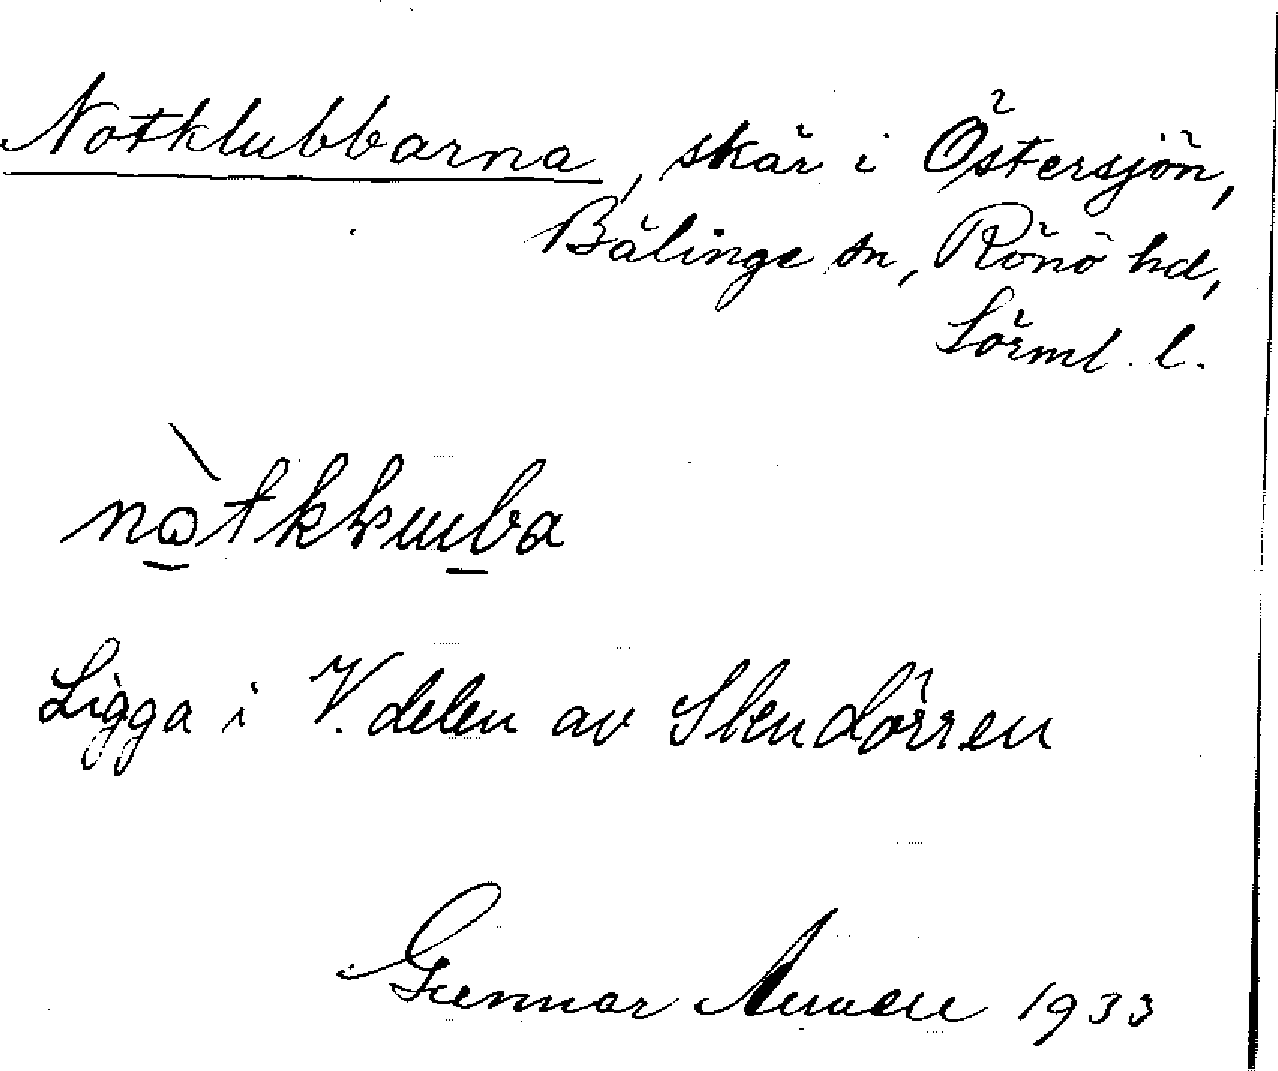 Notklubbarna, skär i Östersjön,
Bälinge sn, Rönö hd,
Sörml. l.
Ligga i V. delen av Stendörren
Gunnar 1933